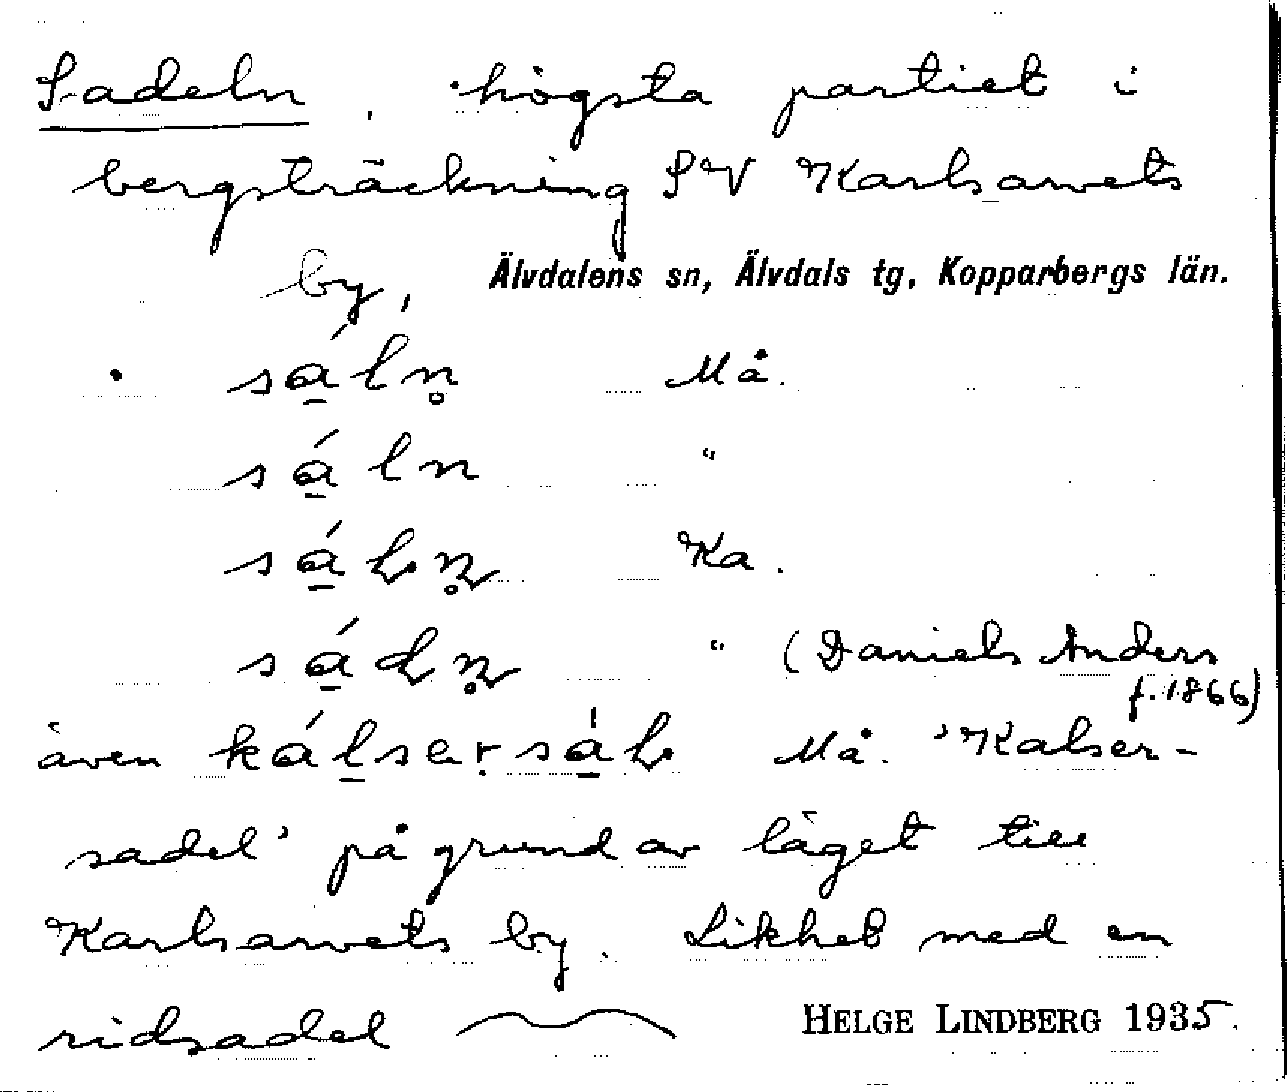 Sadeln, högsta partiet i
bergsträckning SV Karlsarvets
by, Älvdalens sn, Älvdals tg, Kopparbergs län.
sá̱ln̥ Må.
sá̱ln "
sá̱ln̥ Ka.
sá̱dn̥ " (Daniels Anders
f. 1866)
även kálsersá̱l Må. 'Kalser-
sadel' på grund av läget till
Karlsarvets by. Likhet med en
ridsadel
HELGE LINDBERG 1935.